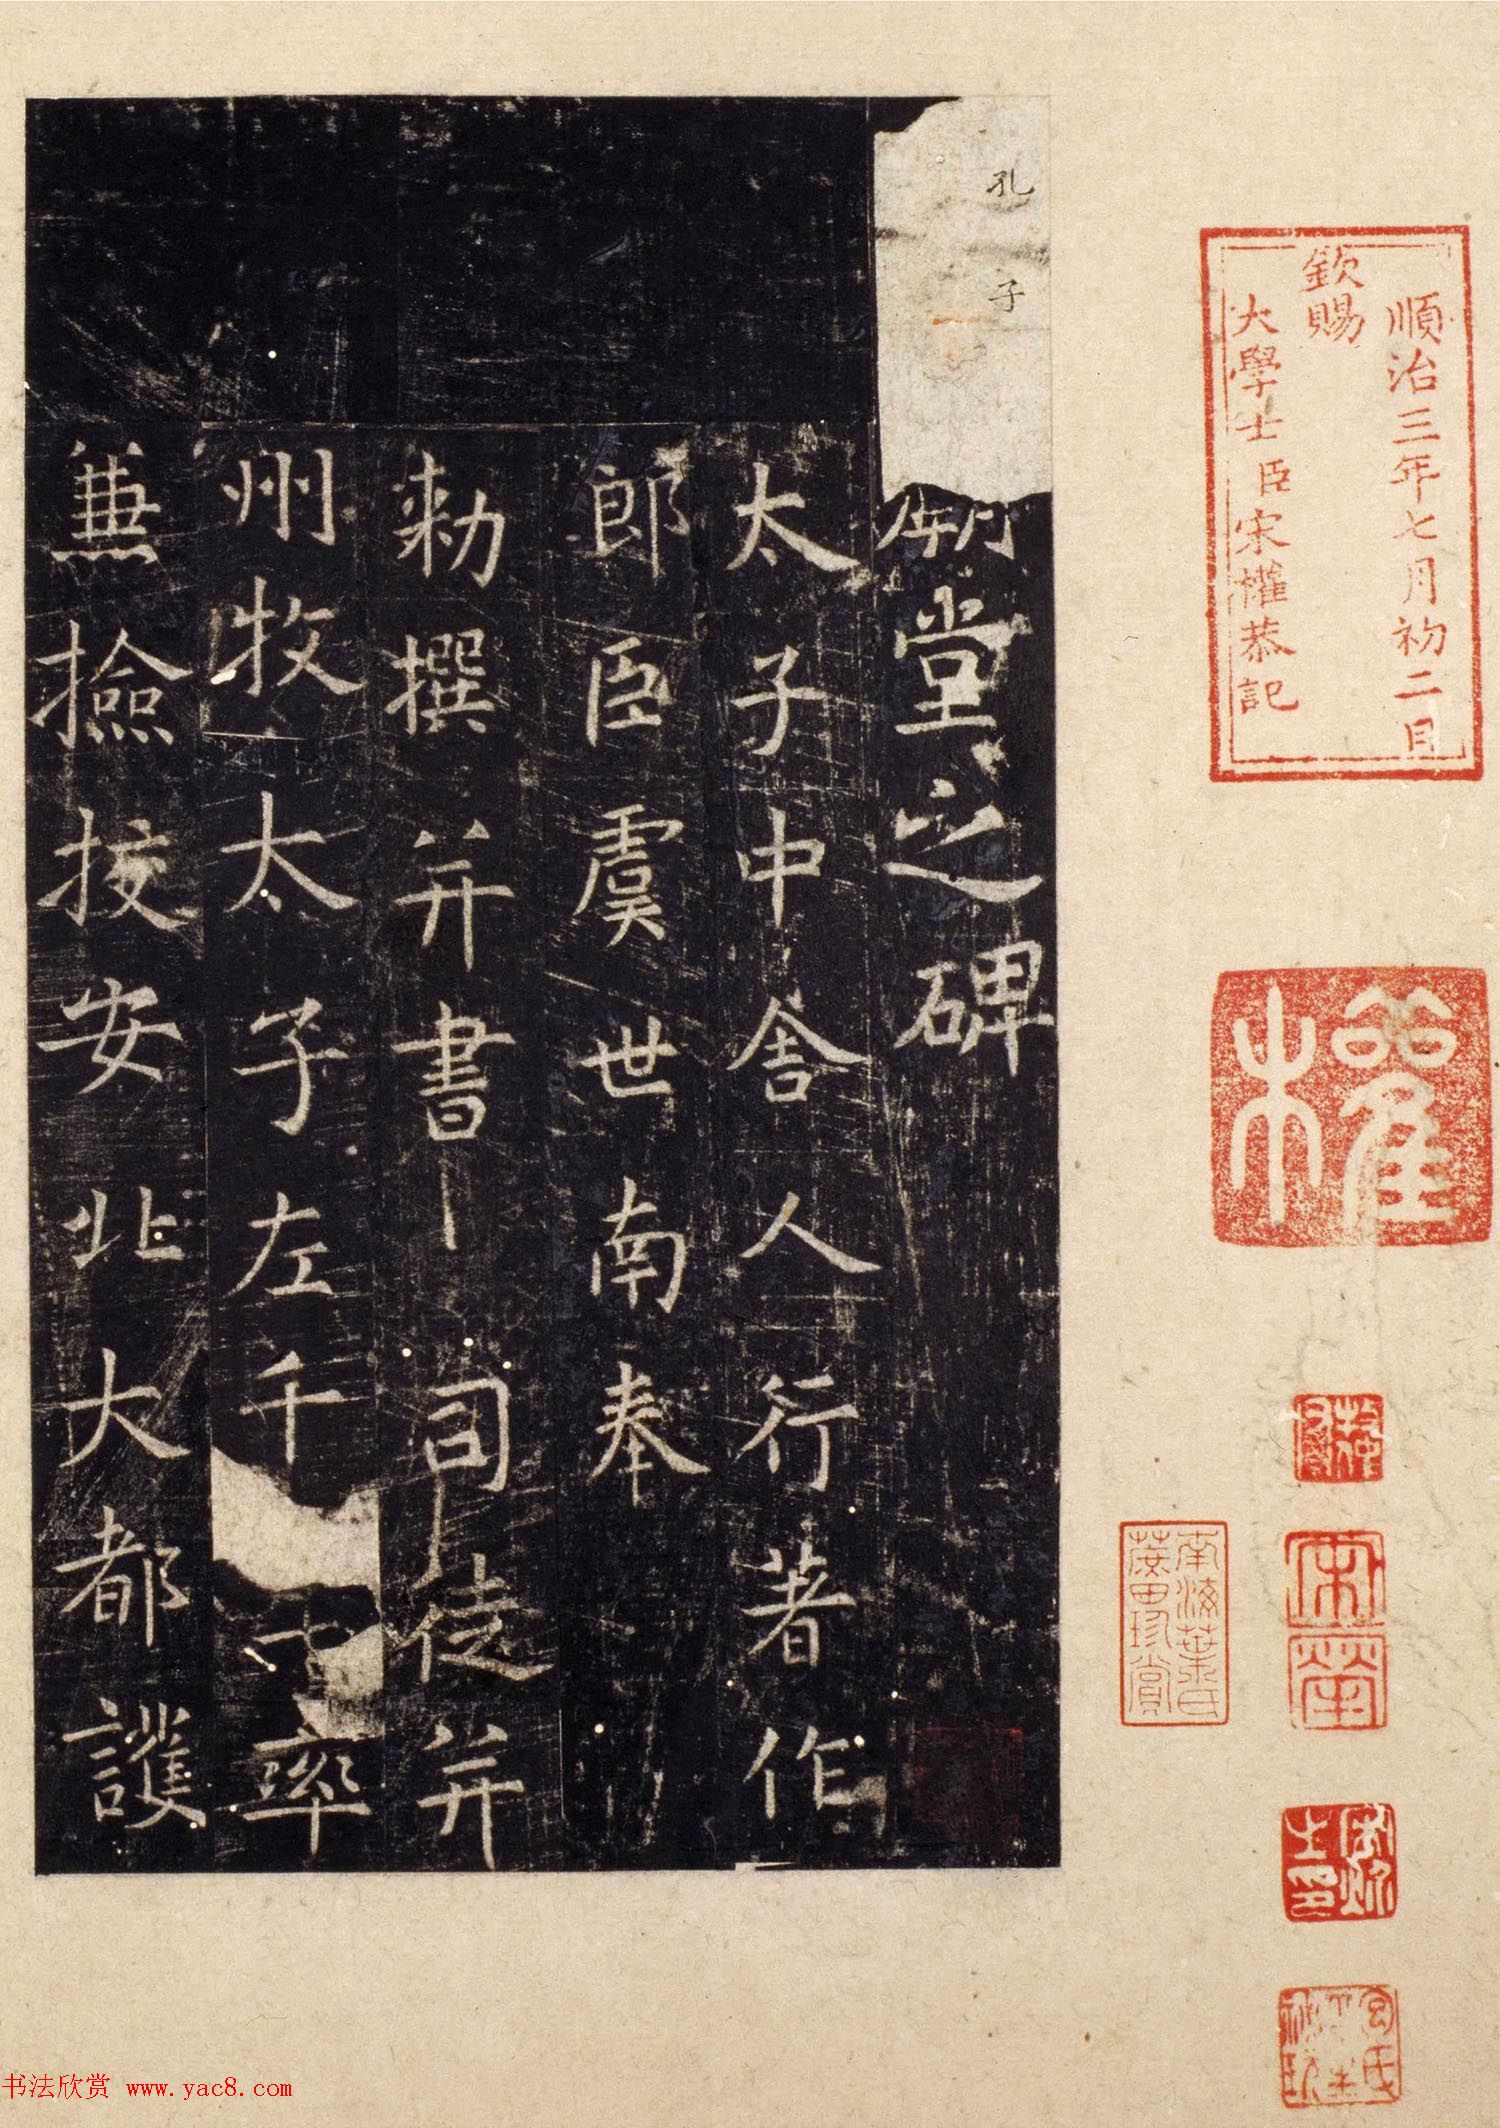 順治三年七月初二日
欽賜
大學士臣宋權恭記
權
南海葉氏
蔗田珍賞
宋犖
孔子
廟堂之碑
太子中舍人行著作
郎臣虞世南奉
勅撰并書 司徒并
州牧太子左千 率
兼撿挍安北大都護
书法欣赏 www.yac8.com